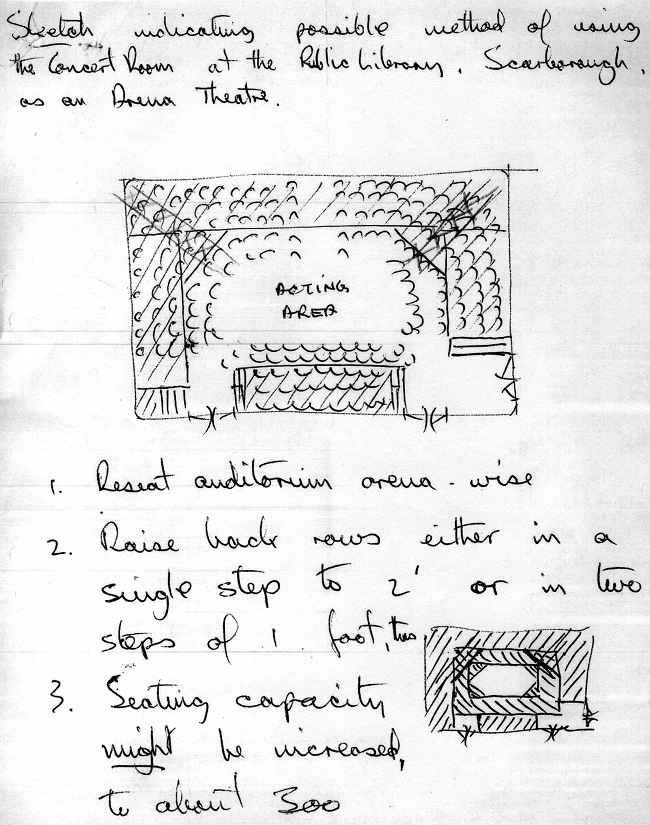 Sketch indicating possible method of using
the Concert Room at the Public Library, Scarborough,
as an Arena Theatre.
ACTING
AREA
1. Reseat auditorium arena-wise
2. Raise back rows either in a
single step to 2' or in two
steps of 1 foot, thus
3. Seating capacity
might be increased,
to about 300